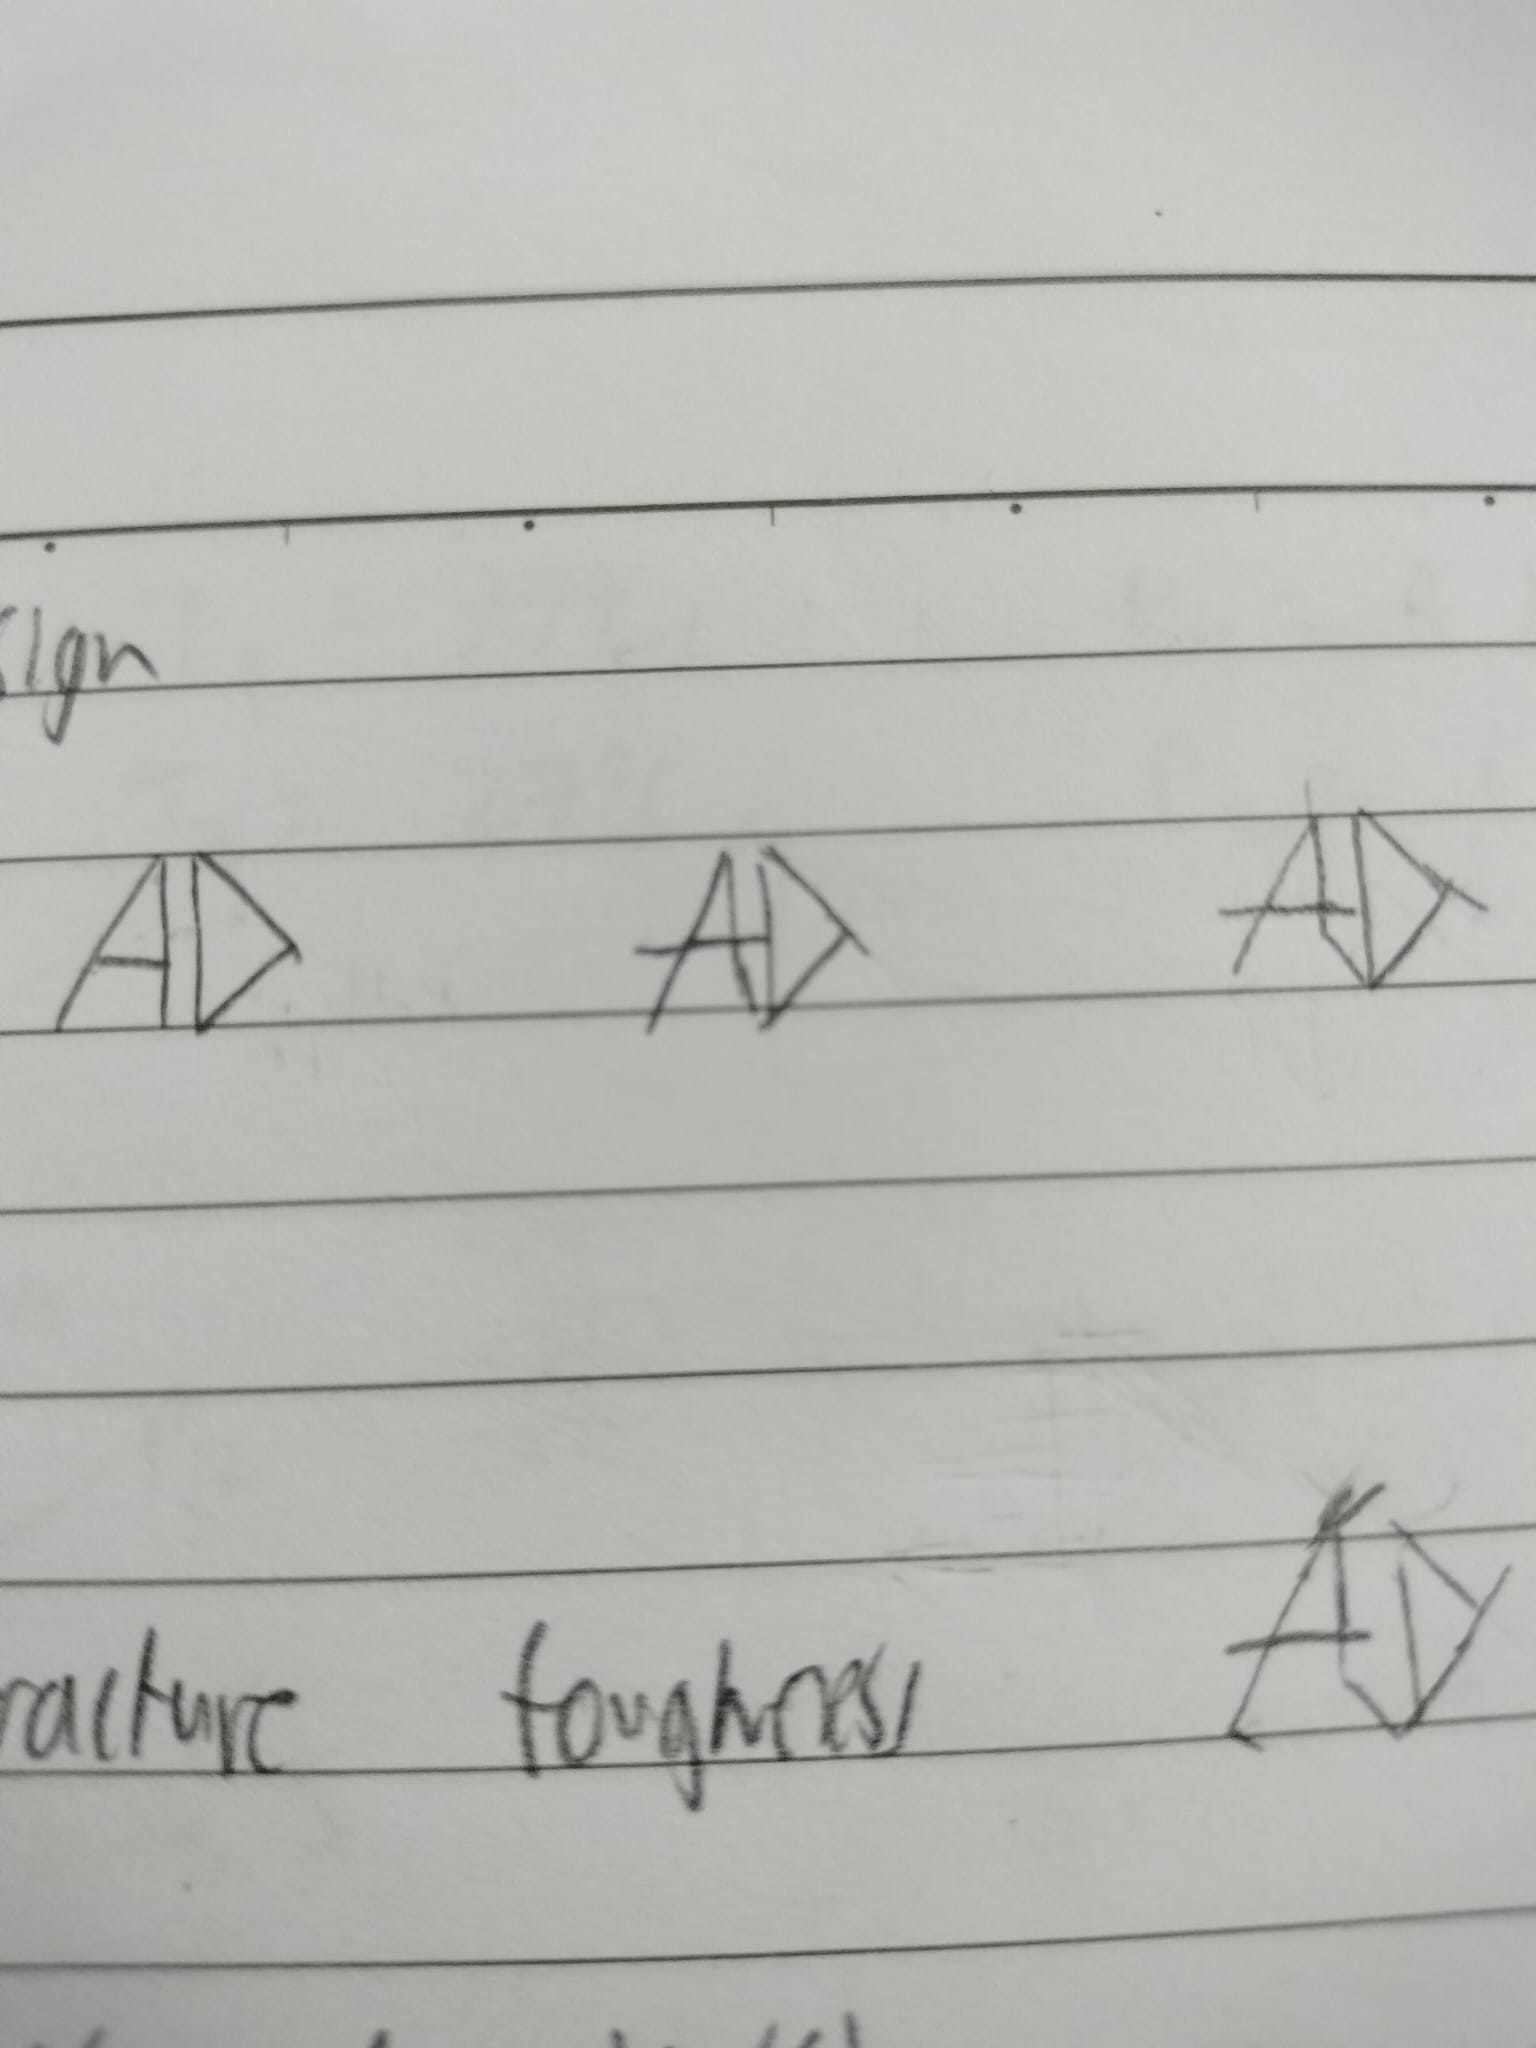 sign
AD AD AD
AD
racture toughness